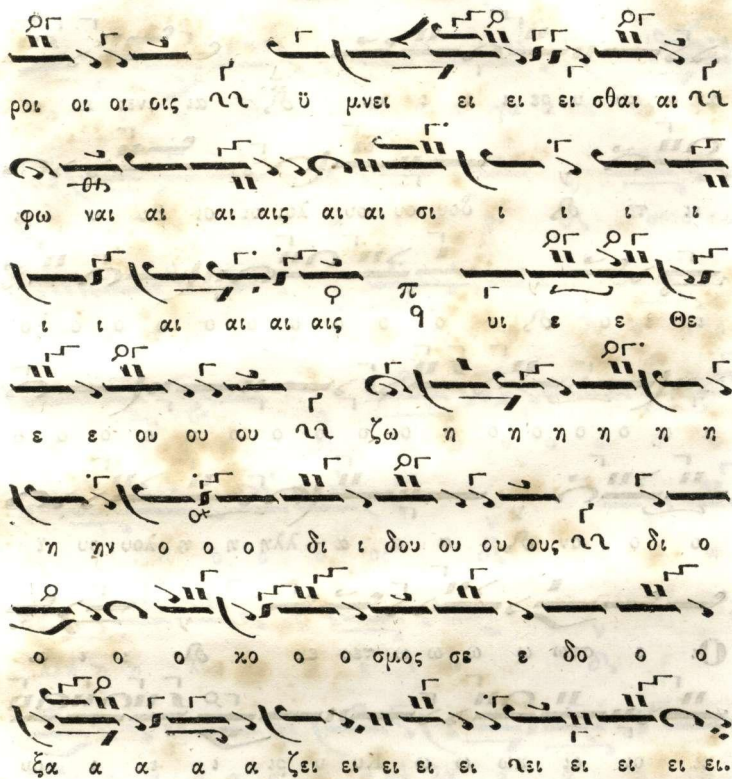 ροι οι οι οις ϋ μνει ει ει ει σθαι αι
φω ναι αι αι αις αι αι σι ι ι ι ι
ι ι αι αι αι αις π q υι ε ε Θε
ε ε ου ου ου ζω η η η η η η
η ην ο ο ο δι ι δου ου ου ους δι ο
ο ο ο κο ο ο σμος σε ε δο ο ο
ξα α α α α ζει ει ει ει ει ει ει ει ει.